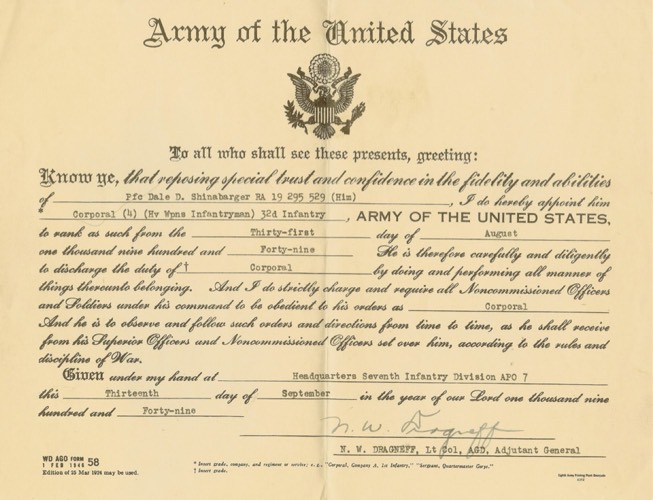 Army of the United States
To all who shall see these presents, greeting:
Know ye, that reposing special trust and confidence in the fidelity and abilities
of Pfc Dale D. Shinabarger RA 19 295 529 (Him), I do hereby appoint him
* Corporal (4) (Hv Wpns Infantryman) 32d Infantry, ARMY OF THE UNITED STATES,
to rank as such from the Thirty-first day of August
one thousand nine hundred and Forty-nine He is therefore carefully and diligently
to discharge the duty of † Corporal by doing and performing all manner of
things thereunto belonging. And I do strictly charge and require all Noncommissioned Officers
and Soldiers under his command to be obedient to his orders as Corporal
And he is to observe and follow such orders and directions from time to time, as he shall receive
from his Superior Officers and Noncommissioned Officers set over him, according to the rules and
discipline of War.
Given under my hand at Headquarters Seventh Infantry Division APO 7
this Thirteenth day of September in the year of our Lord one thousand nine
hundred and Forty-nine
N. W. Dragneff
N. W. DRAGNEFF, Lt Col, AGD, Adjutant General
WD AGO FORM 58
1 FEB 1946
Edition of 25 Mar 1926 may be used.
* Insert grade, company, and regiment or service; e. g., "Corporal, Company A, 1st Infantry," "Sergeant, Quartermaster Corps."
† Insert grade.